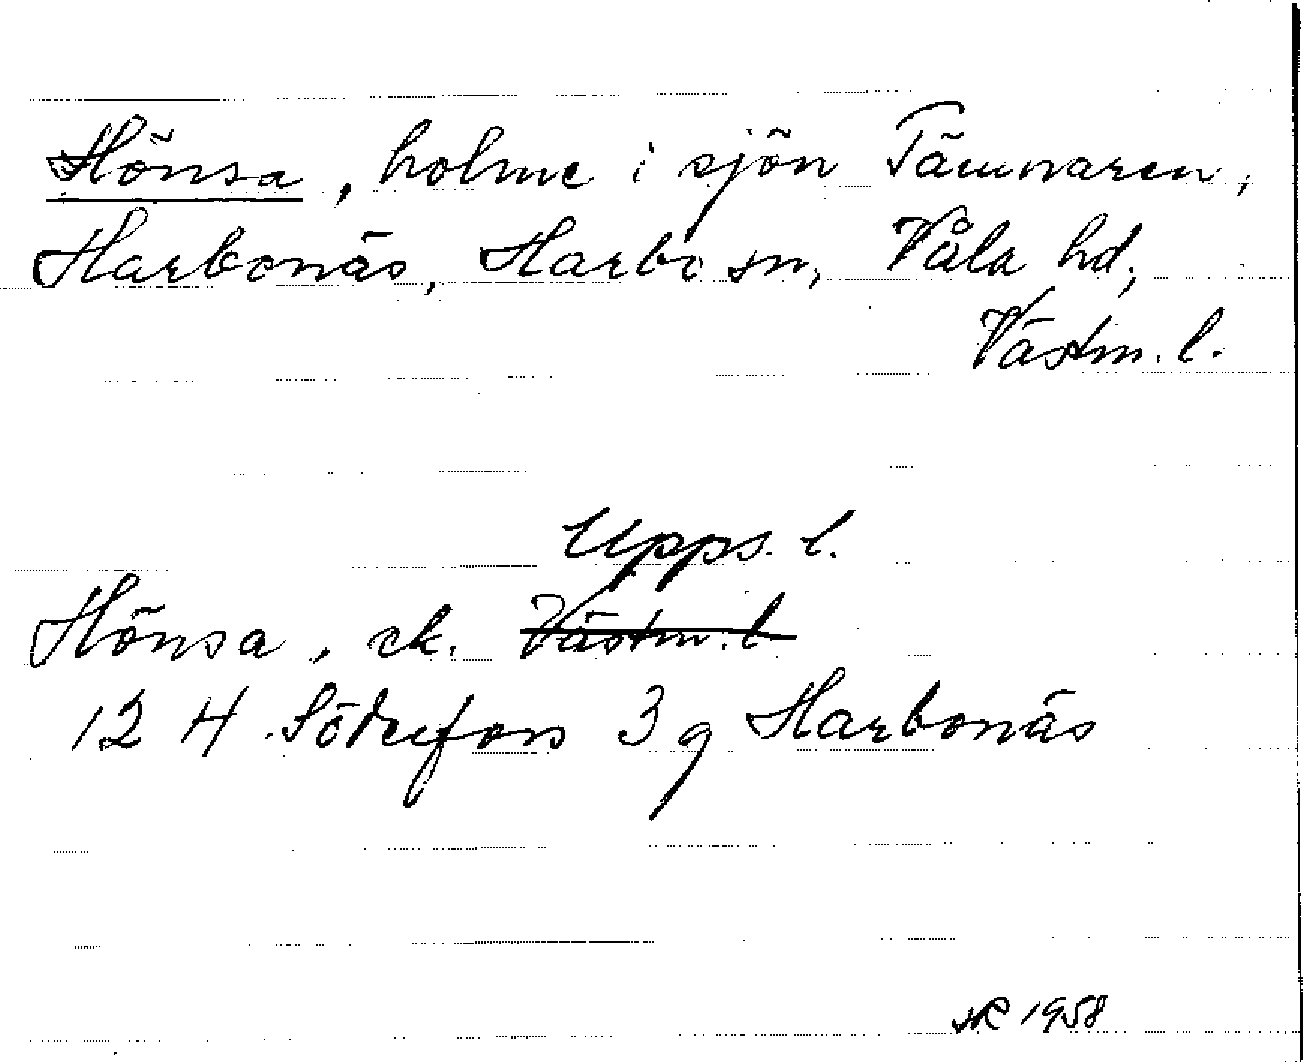 Hönsa, holme i sjön Tämnaren,
Harbonäs, Harbo sn, Våla hd,
Västm. l.
Upps. l.
Hönsa, ek. Västm. l
12 H Söderfors 3 g Harbonäs
HR 1958